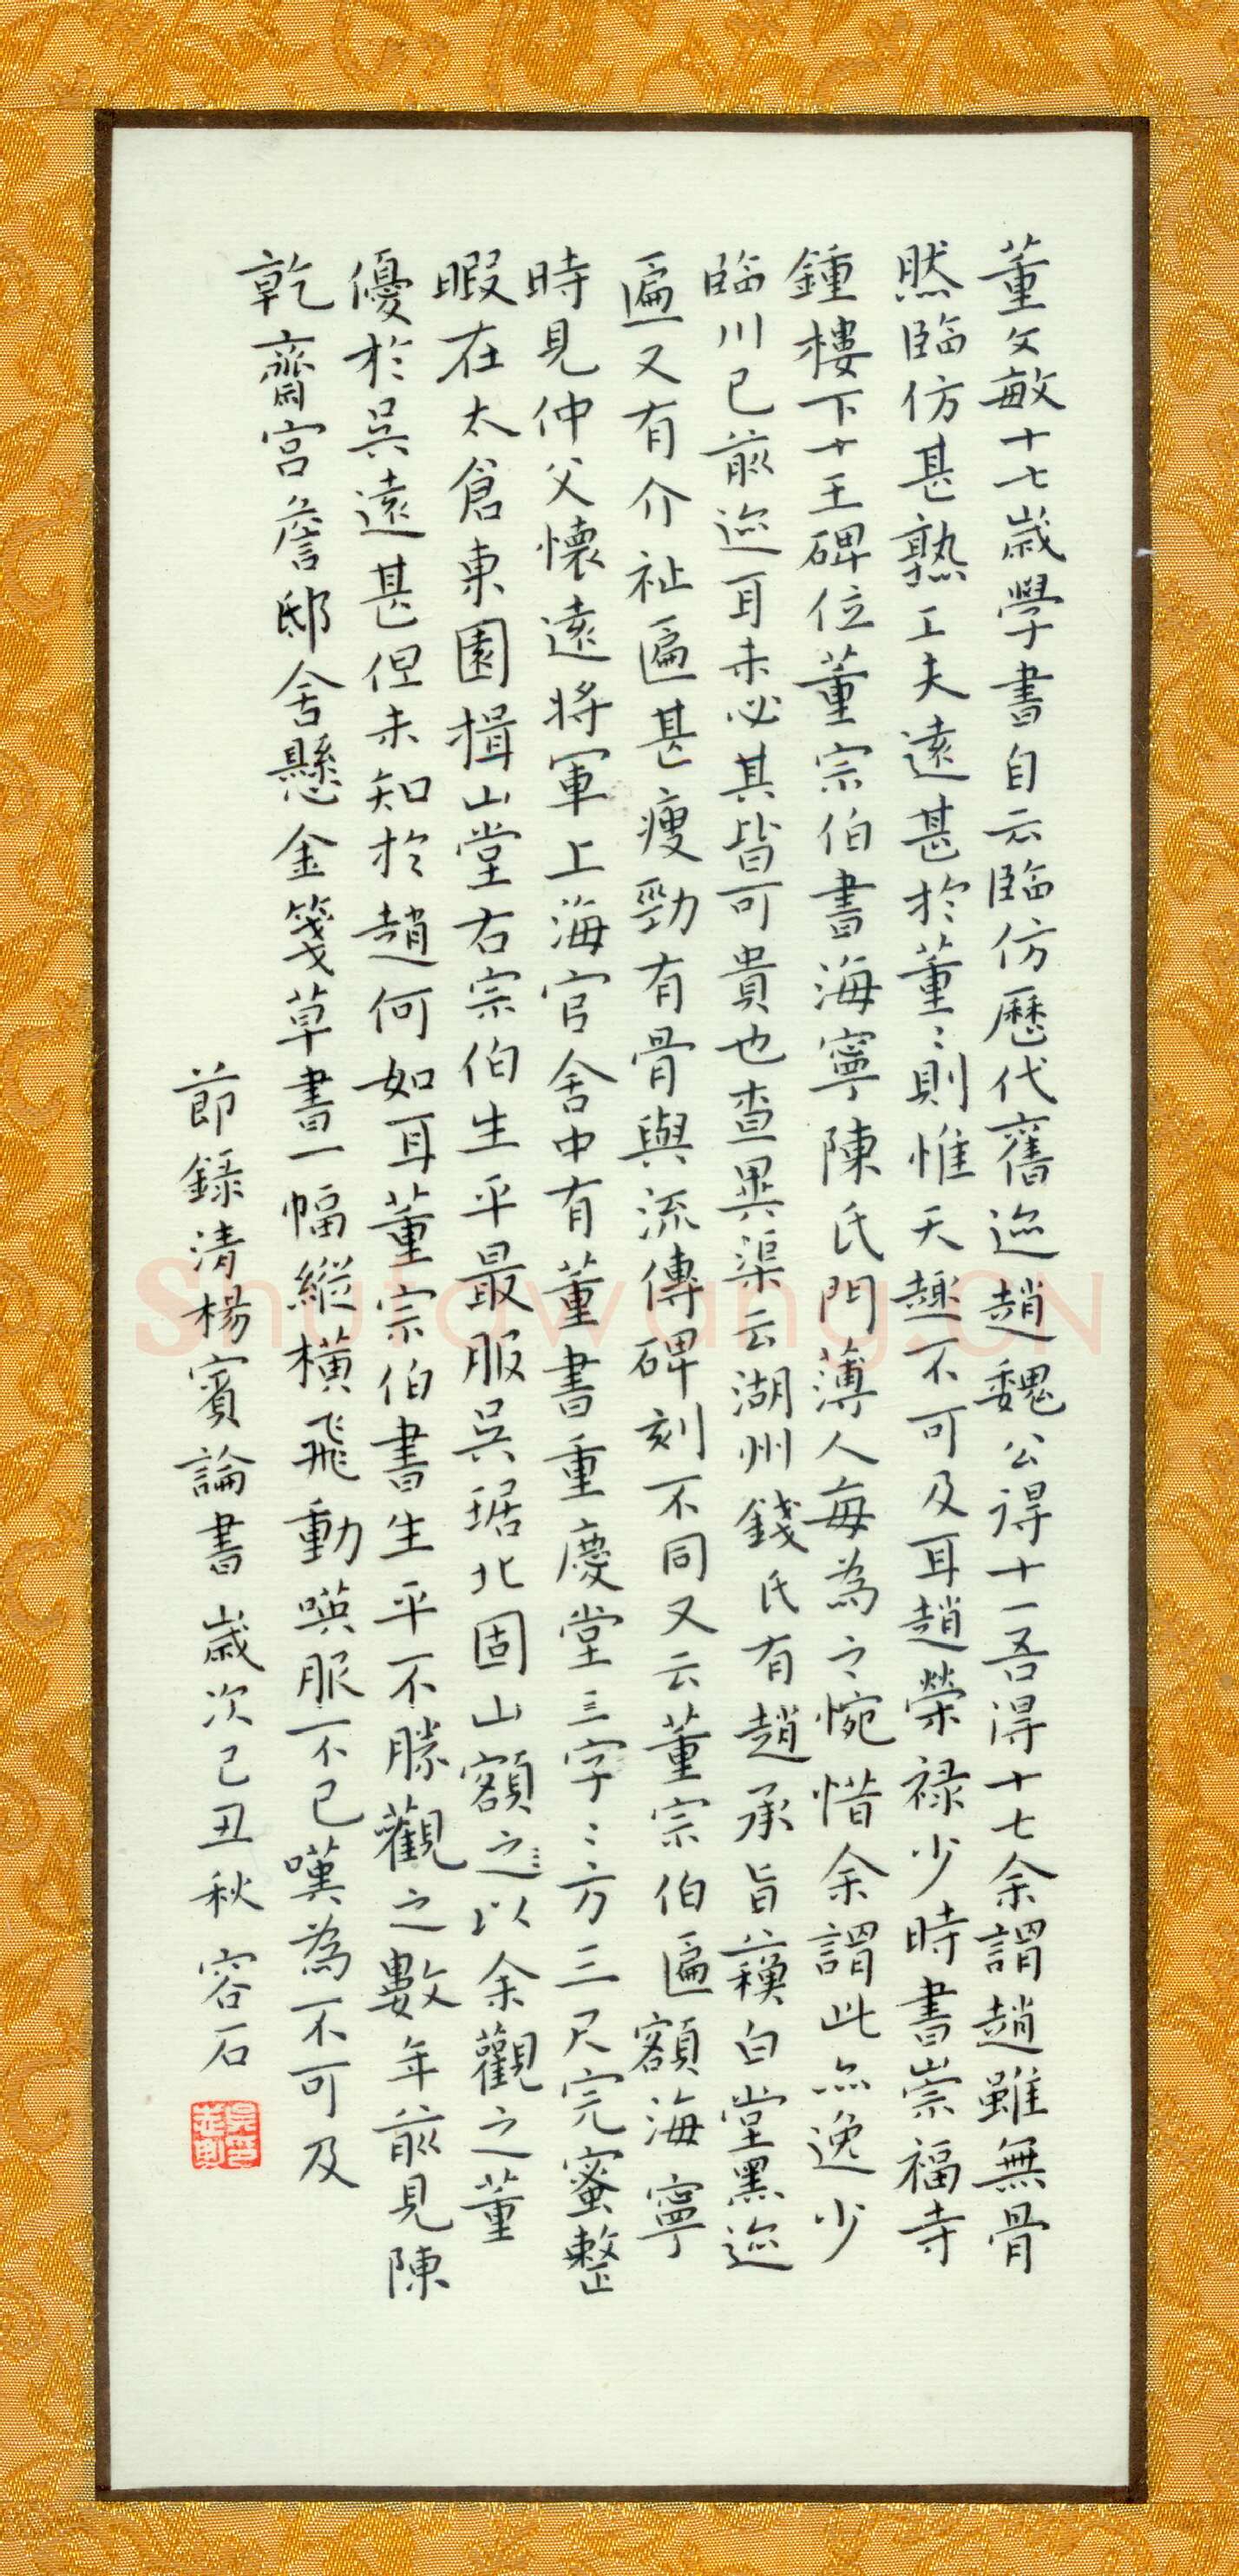 董文敏十七歲學書自云臨仿歷代舊迹趙魏公得十一吾得十七余謂趙雖無骨
然臨仿甚熟工夫遠甚於董〻則惟天趣不可及耳趙榮祿少時書崇福寺
鍾樓下十王碑位董宗伯書海寧陳氏門薄人每為之惋惜余謂此亦逸少
臨川已前迹耳未必其皆可貴也查異渠云湖州錢氏有趙承旨蘋白堂黑迹
匾又有介祉匾甚瘦勁有骨與流傳碑刻不同又云董宗伯匾額海寧
時見仲父懷遠將軍上海官舍中有董書重慶堂三字〻方三尺完蜜整
暇在太倉東園揖山堂右宗伯生平最服吳琚北固山額之以余觀之董
優於吳遠甚但未知於趙何如耳董宗伯書生平不勝觀之數年前見陳
乾齋宮詹邸舍懸金箋草書一幅縱橫飛動嘆服不已嘆為不可及
節錄清楊賓論書歲次己丑秋 容石
Shufawang.CN